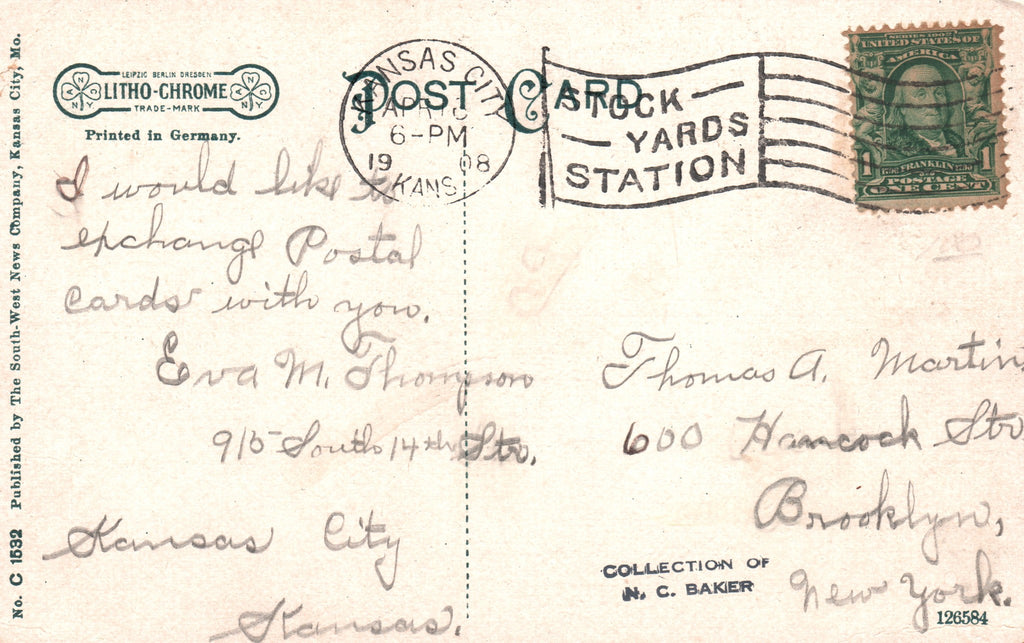 No. C 1532 Published by The South-West News Company, Kansas City, Mo.
LEIPZIG BERLIN DRESDEN
LITHO-CHROME
TRADE-MARK
N K Y
N K C
Printed in Germany.
POST CARD
KANSAS CITY
APR
6-PM
1908
KANS
STOCK
YARDS
STATION
SERIES 1902
UNITED STATES OF
AMERICA
1 FRANKLIN 1
POSTAGE
ONE CENT
I would like to
exchange Postal
cards with you.
Eva M. Thompson
915 South 14th Str.
Kansas City
Kansas.
Thomas A. Martin
600 Hancock Str
Brooklyn,
New York.
COLLECTION OF
N. C. BAKER
126584